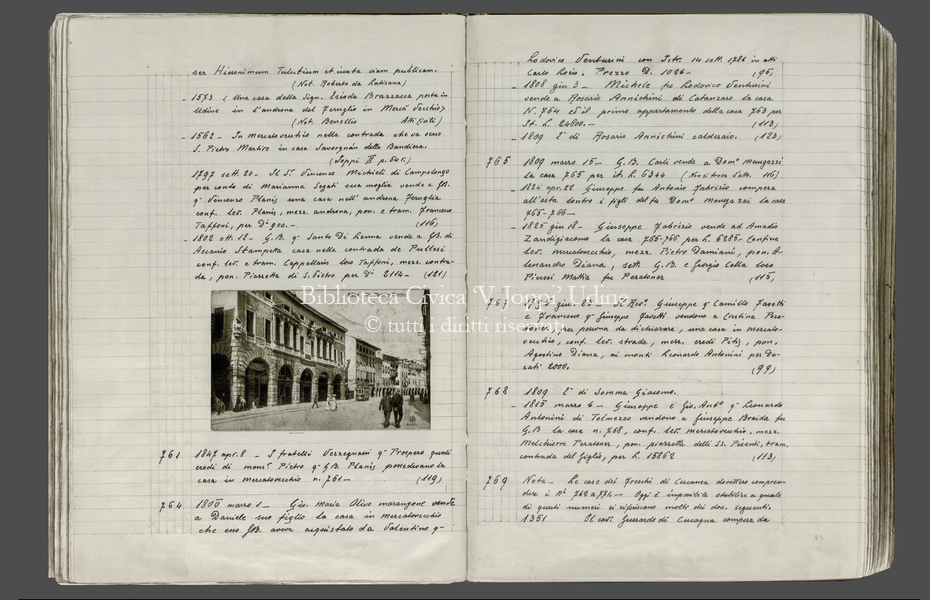 ser Hieronimum Tulutium et iuxta viam publicam.
(Not. Roberto da Latisana)
- 1573 < Una casa della Sign. Isioda Brazzaca posta in
Udine in l'androna del Feruglio in Mercà Vecchio>
(Not. Benellio Atti Civili)
- 1562 - In mercatovecchio nella contrada che va verso
S. Pietro Martire in casa Savorgnan della Bandiera.
(Joppi II p. 545.)
1797 sett. 20 - Il Sr. Vincenzo Michieli di Campolongo
per conto di Marianna Segati sua moglie vende a GB.
q. Vincenzo Planis una casa nell'androna Feruglio
conf. lev. Planis, mezz. androna, pon. e tram. Francesco
Taffoni, per Di 900.- (116)
- 1802 ott. 12 - G.B. q. Santo Di Lenna vende a GB. di
Ascanio Stampetta casa nella contrada de Pulleri
conf. lev. e tram. Cappellaris loco Taffoni, mezz. contra-
da, pon. Piazzetta di S. Pietro per Di 2114- (121)
761 1847 apr. 8 - I fratelli Verzegnassi q. Prospero quali
eredi di mons. Pietro q. GB. Planis possedevano la
casa in mercatovecchio n. 761- (119)
764 1800 marzo 1 - Gio. Maria Olivo marangone vende
a Daniele suo figlio la casa in mercatovecchio
che esso GB. aveva acquistato da Valentino q.
Lodovico Venturini con Istr. 14 sett. 1786 in atti
Carlo Losio. Prezzo D. 1086- (95)
- 1808 giu 3 - Michele fu Lodovico Venturini
vende a Rosario Annichini di Catanzaro la casa
N. 764 ed il primo appartamento della casa 763 per
It. L. 24800.- (113)
- 1809 È di Rosario Annichini calderaio. (123)
765 1809 marzo 15 - G.B. Carli vende a Domo Menegazzi
la casa 765 per it. L. 6344 (Non si trova l'att. 116)
- 1824 apr. 22 Giuseppe fu Antonio Fabrizio compera
all'asta contro i figli del fu Domo Menegazzi la casa
765-766-
- 1825 giu 18 - Giuseppe Fabrizio vende ad Amadio
Zandigiacomo la casa 765-766 per L. 6285. Confina
lev. mercatovecchio, mezz. Pietro Damiani, pon. A-
lessandro Diana, sett. G.B. e Giorgio Cella loco
Piussi Mattia fu Peratoner (115)
Biblioteca Civica 'V. Joppi' Udine
© tutti i diritti riservati
giu. 22 - Il Revo Giuseppe q. Camillo Fasetti
e Francesco q. Giuseppe Fasetti vendono a Cristina
per persona da dichiarare, una casa in mercato-
vecchio, conf. lev. strada, mezz. eredi Pitis, pon.
Agostino Diana, ai monti Leonardo Antonini per Du-
cati 2000. (99)
768 1809 È di Somma Giacomo.
- 1815 marzo 6 - Giuseppe e Gio. Anto q. Leonardo
Antonini di Tolmezzo vendono a Giuseppe Braida fu
G.B. la casa n. 768, conf. lev. mercatovecchio, mezz.
Melchiorre Peratoner, pon. piazzetta delli SS. Pisenti, tram.
contrada del Giglio, per L. 15862 (113)
769 Nota - Le case dei Freschi di Cucanea dovettero compren-
dere i Ni 769 a 771.- Oggi è impossibile stabilire a quale
di questi numeri si riferiscano molti dei doc. seguenti.
1351 Il cav. Gerardo di Cucagna compera da